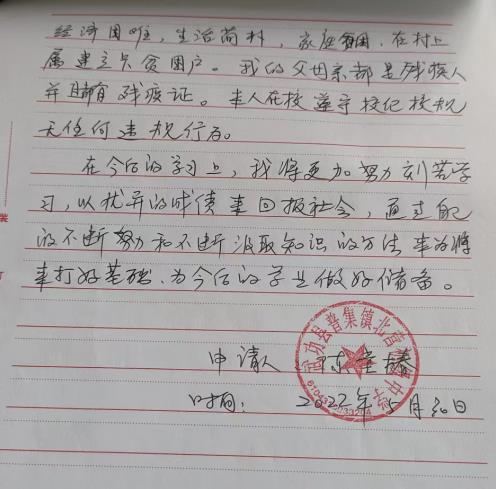 经济困难，生活简朴，家庭贫困，在村上
属建立卡贫困户。我的父母亲都是残疾人
并且都有残疾证。本人在校遵守校纪校规
无任何违规行为。
在今后的学习上，我将更加努力刻苦学
习，以优异的成绩来回报社会，通过自己
的不断努力和不断汲取知识的方法来为将
来打好基础、为今后的学业做好储备。
申请人
时间：2022年 月30日
武功县普集镇北
装
订